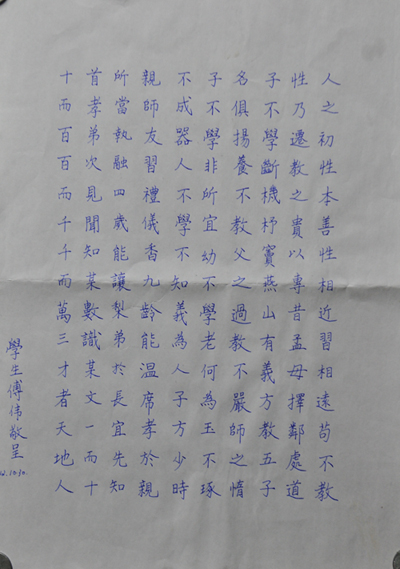 人之初性本善性相近習相遠苟不教
性乃遷教之貴以專昔孟母擇鄰處道
子不學斷機杼竇燕山有義方教五子
名俱揚養不教父之過教不嚴師之惰
子不學非所宜幼不學老何為玉不琢
不成器人不學不知義為人子方少時
親師友習禮儀香九齡能溫席孝於親
所當執融四歲能讓梨弟於長宜先知
首孝弟次見聞知某數識某文一而十
十而百百而千千而萬三才者天地人
學生傅伟敬呈